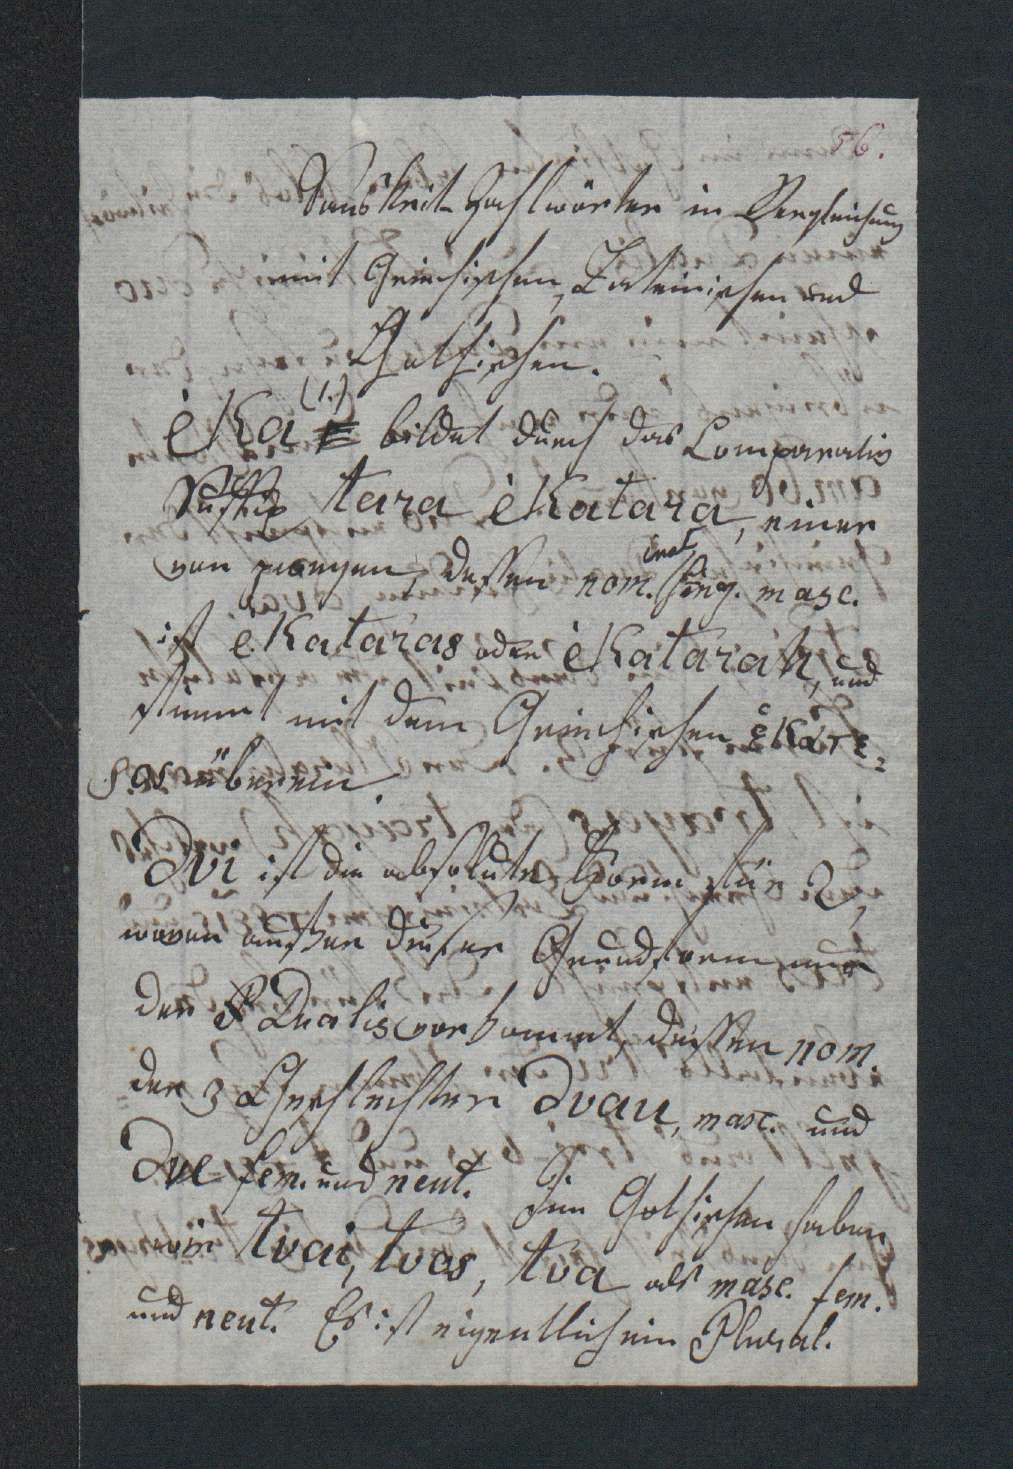 56.
Sanskrit-Zahlwörter in Vergleichung
mit Griechischen, Lateinischen und
Gothischen.
èka (1.) bildet durch das Comparativ
Suffix tara èkatara, einer
von zweyen, dessen nom. sing. masc.
ist èkataras oder èkatarah, und
stimmt mit dem Griechischen ἑκατε-
ρος überein.
Dvi ist die absolute Form für 2,
wovon außer dieser Grundform nur
der Dualis vorkommt, dessen nom.
der 3 Geschlechter dvau, masc. und
dve fem. und neut. Im Gothischen haben
wir tvai, tvos, tva als masc. fem.
und neut. Es ist eigentlich ein Plural.